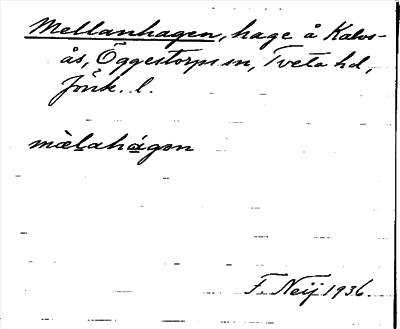 Mellanhagen, hage å Kalvs-
ås, Öggestorps sn, Tveta hd,
Jönk. l.
mèlahágən
F. Neij 1936.